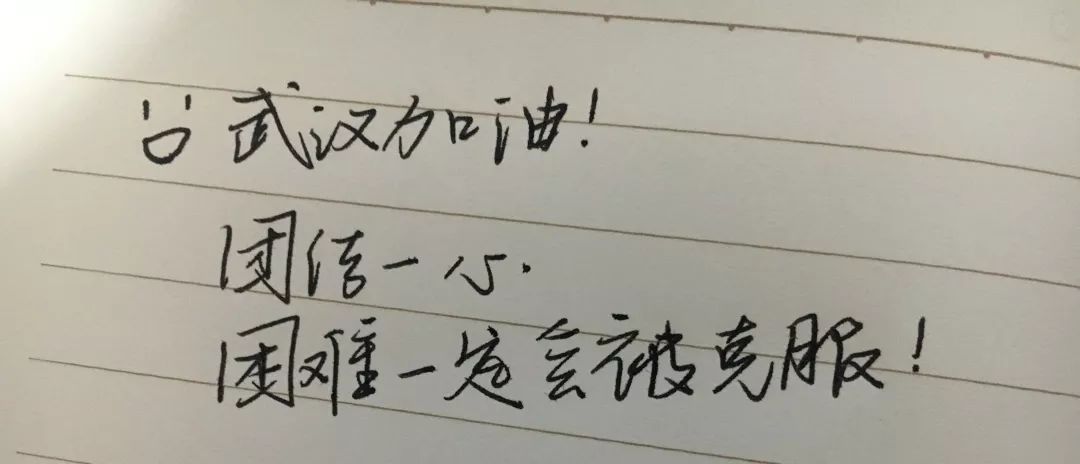 武汉加油！
团结一心.
困难一定会被克服！